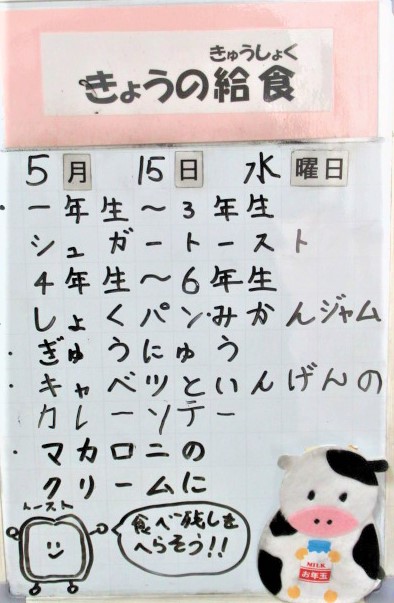 きゅうしょく
きょうの給食
5月 15日 水曜日
・一年生〜3年生
シュガートースト
4年生〜6年生
しょくパン・みかんジャム
・ぎゅうにゅう
・キャベツといんげんの
カレーソテー
・マカロニの
クリームに
トースト
食べ残しを
へらそう!!
MILK
お年玉